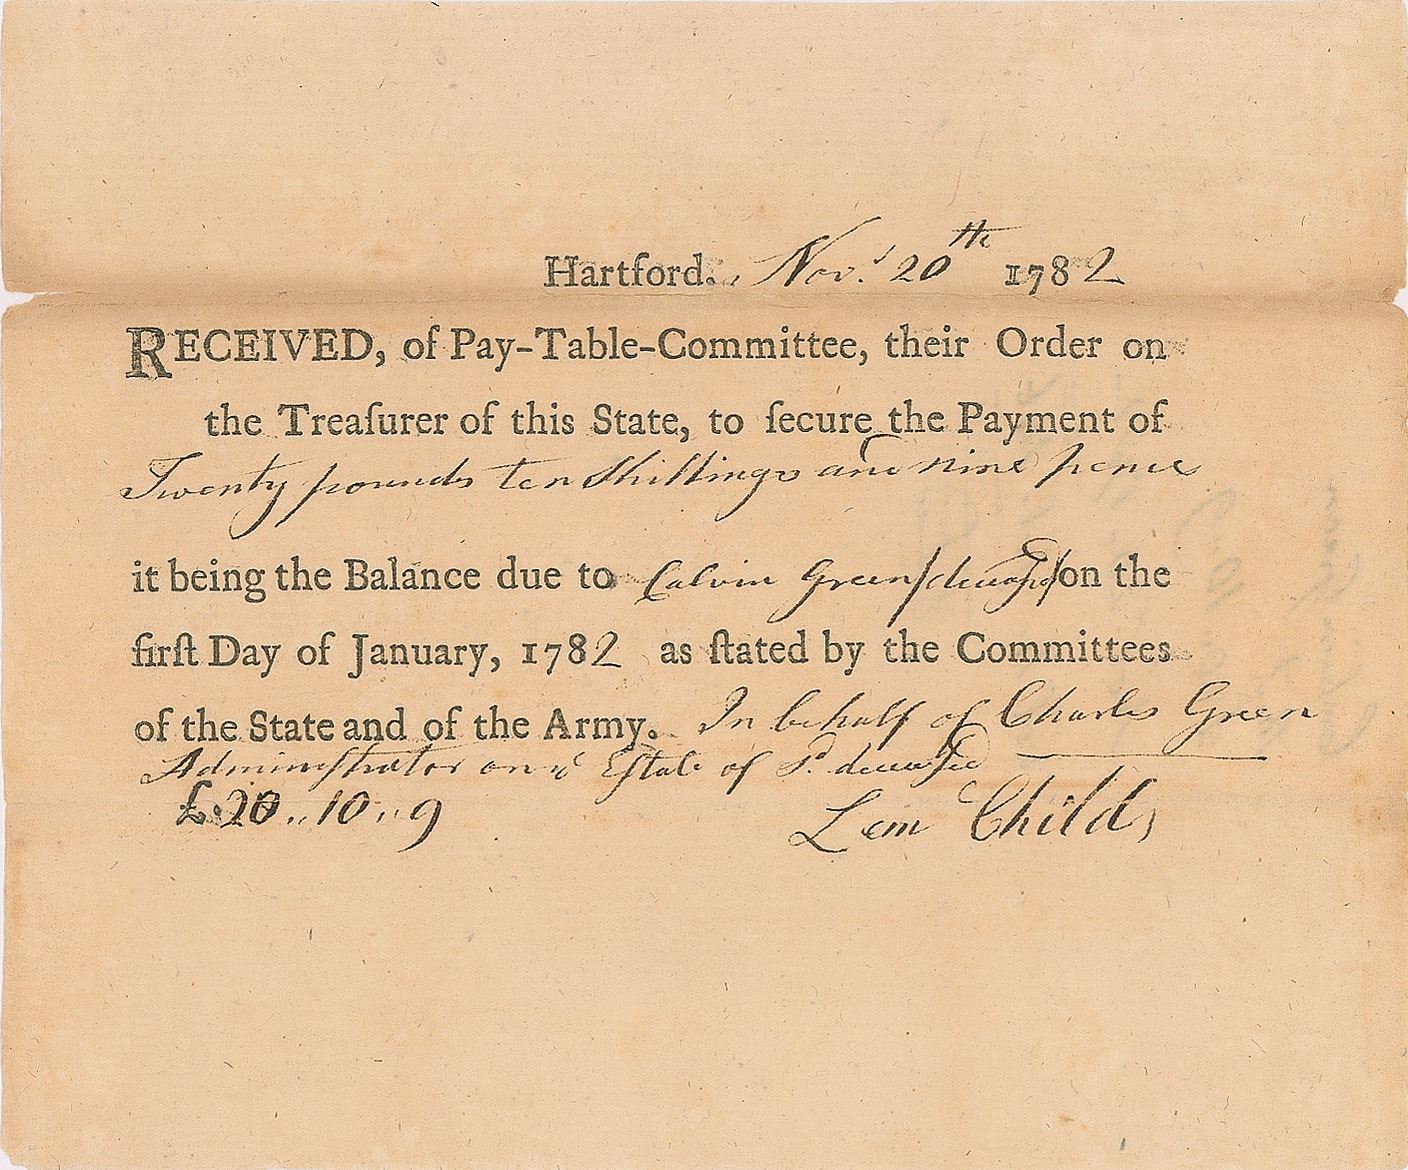 Hartford. Nov.r 20th 1782
RECEIVED, of Pay-Table-Committee, their Order on
the Treaſurer of this State, to ſecure the Payment of
Twenty pounds ten Shillings and nine pence
it being the Balance due to Calvin Green /deceaſed/ on the
firſt Day of January, 1782 as ſtated by the Committees
of the State and of the Army. In behalf of Charles Green
Adminiſtrator on ye Eſtate of Sd deceaſed
£.20,,10,,9 Lem Childs